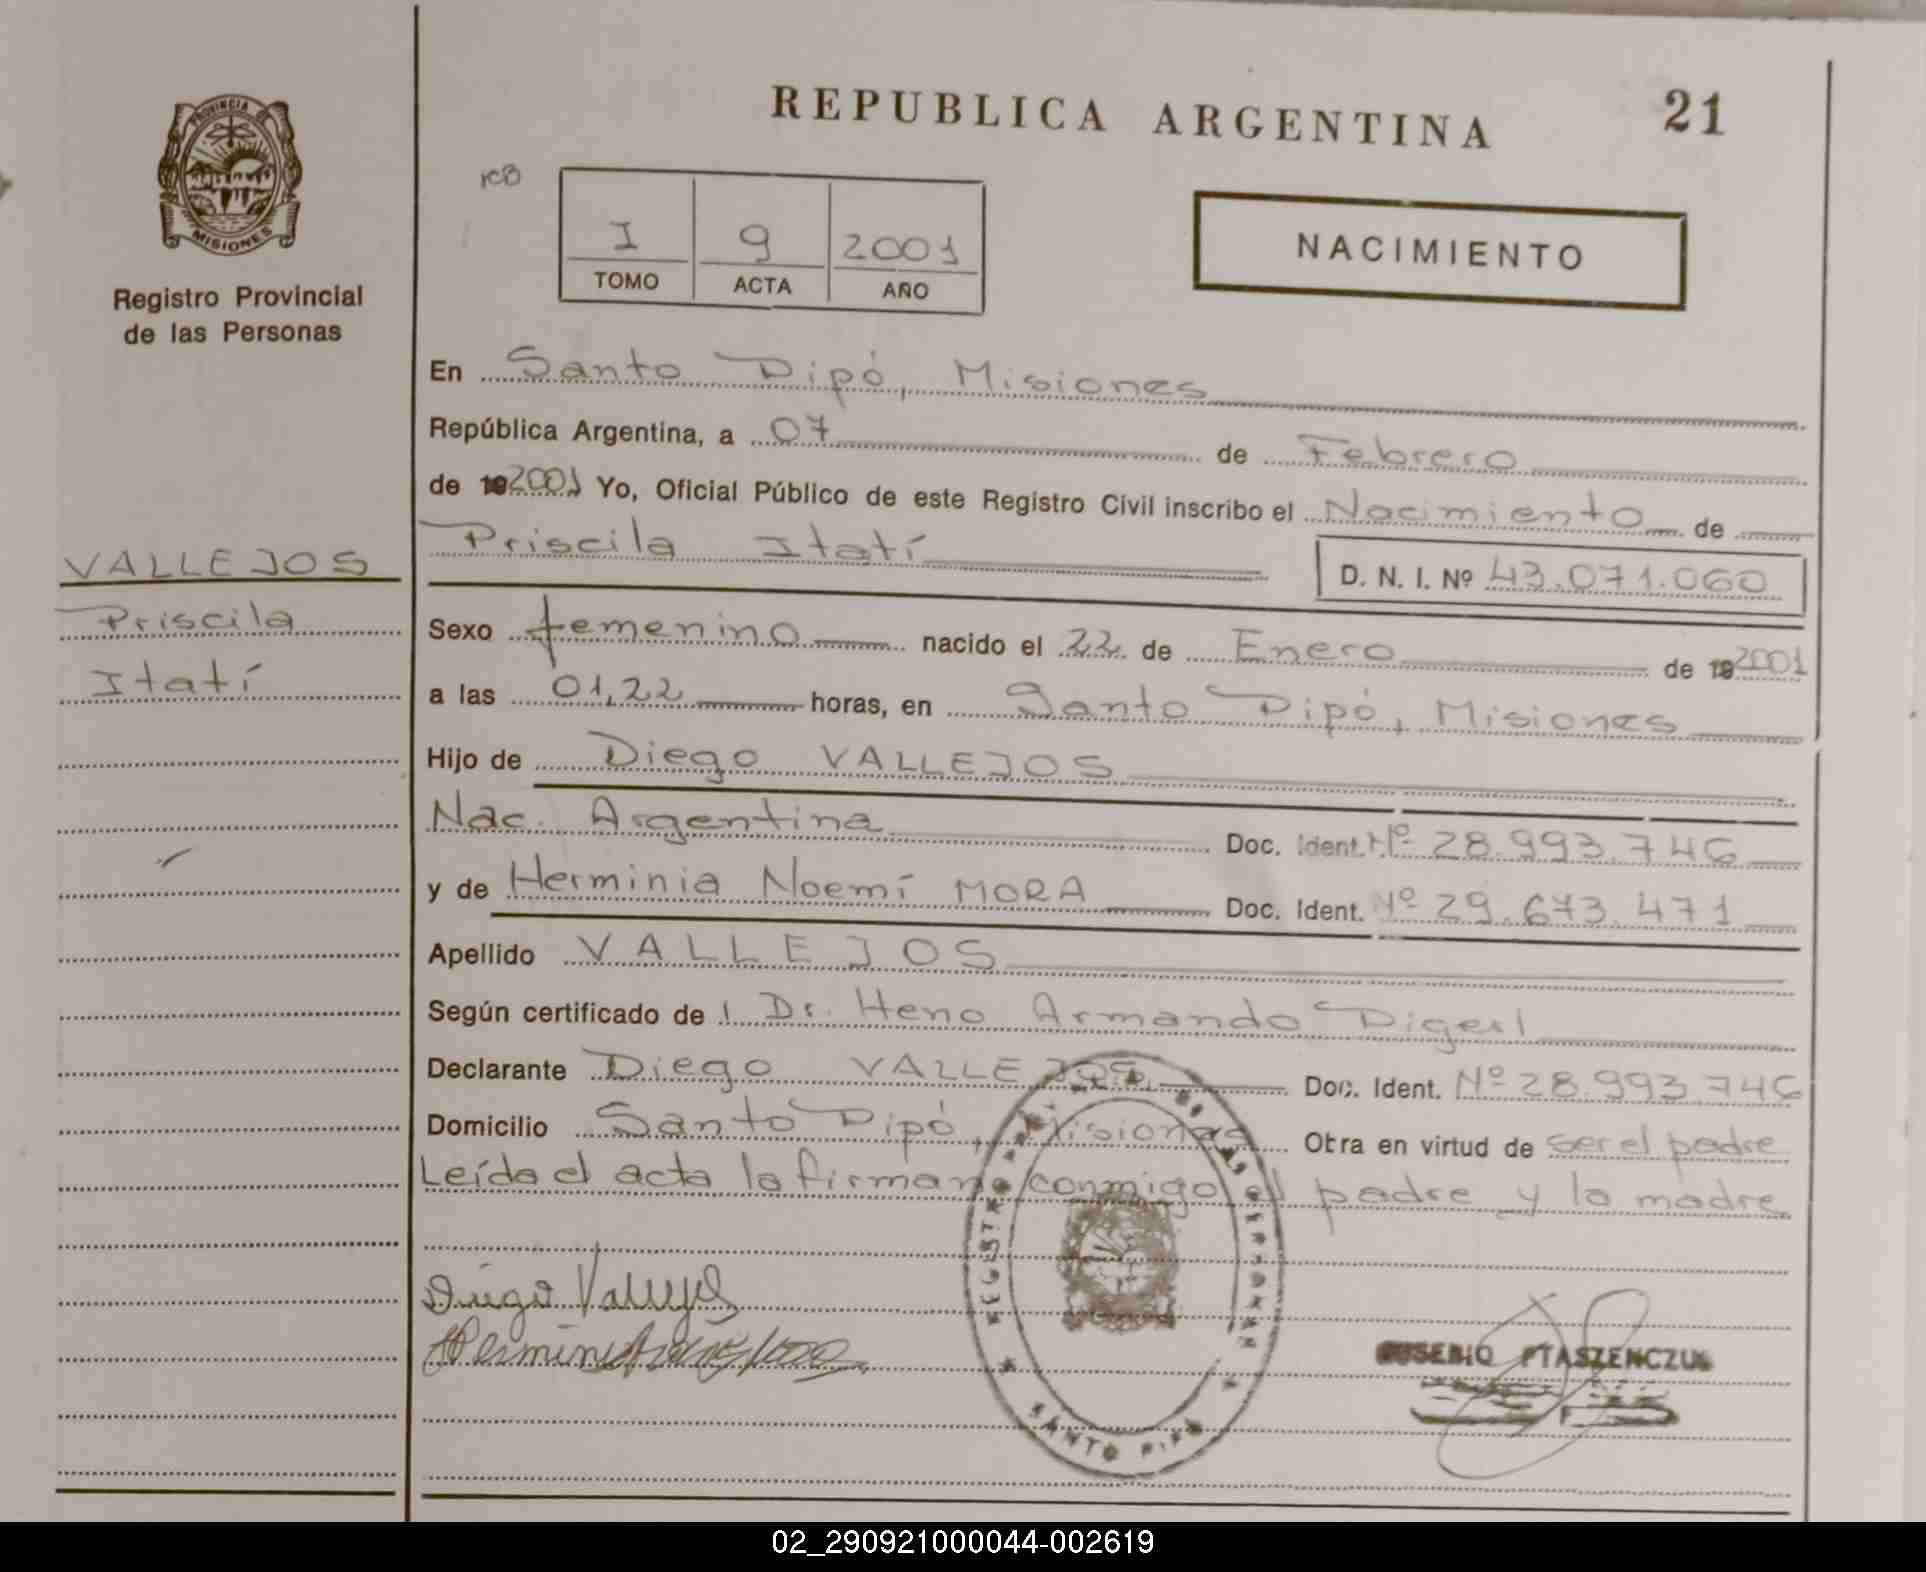 REPUBLICA ARGENTINA
21
PROVINCIA DE
MISIONES
Registro Provincial
de las Personas
I 9 2001
TOMO ACTA AÑO
NACIMIENTO
VALLEJOS
Priscila
Itatí
En Santo Pipó, Misiones
República Argentina, a 07 de Febrero
de 192001 Yo, Oficial Público de este Registro Civil inscribo el Nacimiento de
Priscila Itatí
D. N. I. Nº 43.071.060
Sexo femenino nacido el 22 de Enero de 192001
a las 01,22 horas, en Santo Pipó, Misiones
Hijo de Diego VALLEJOS
Nac. Argentina Doc. Ident. Nº 28.993.746
y de Herminia Noemí MORA Doc. Ident. Nº 29.673.471
Apellido VALLEJOS
Según certificado de l Dr. Heno Armando Digerl
Declarante Diego VALLEJOS Doc. Ident. Nº 28.993.746
Domicilio Santo Pipó, Misiones Otra en virtud de ser el padre
Leída el acta la firman conmigo el padre y la madre
Diego Vallejos
EUSEBIO PTASZENCZUK
SANTO PIPO
02_290921000044-002619